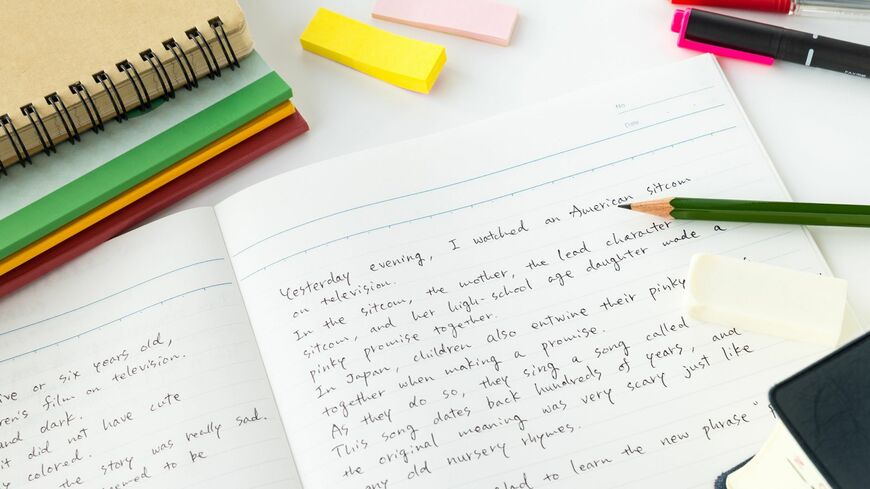 ive or six years old,
ren's film on television.
and dark.
it did not have cute
y colored.
the story was really sad.
eemed to be
No.
Date
Yesterday evening, I watched an American sitcom
on television.
In the sitcom, the mother, the lead character
sitcom, and her high-school age daughter made a
pinky promise together.
In Japan, children also entwine their pinky
together when making a promise.
As they do so, they sing a song called
This song dates back hundreds of years, and
the original meaning was very scary just like
any old nursery rhymes.
lad to learn the new phrase "